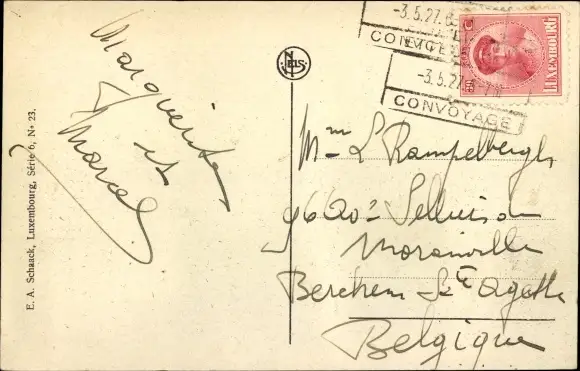 Marguerite
et
Marcel
E. A. Schaack, Luxembourg, Série 6, No 23.
NELS
-3.5.27.
CONVOYAGE
-3.5.27
CONVOYAGE
LUXEMBOURG
Mme L Rampelbergh
96
Berchem Ste Agathe
Belgique